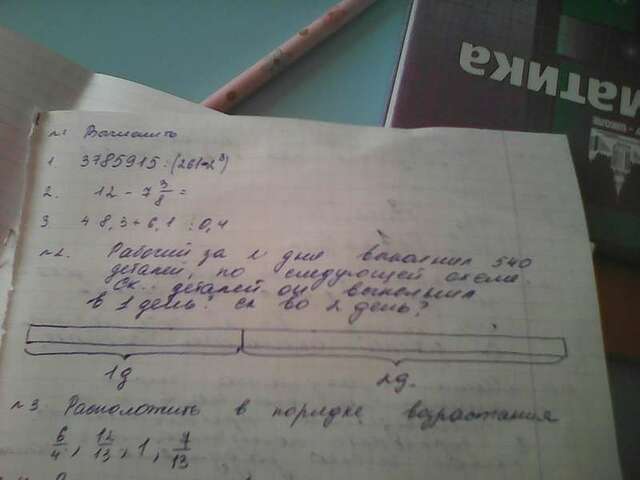 матика
№1 Вычислить
1. 3785915:(261-2³)
2. 12-7 3/8=
3. 48,3+6,1:0,4
№2. Рабочий за 2 дня выполнил 540
деталей, по следующей схеме.
Ск. деталей он выполнил
в 1 день? ск во 2 день?
1д 2д.
№3 Расположить в порядке возрастания
6/4, 12/13, 1, 7/13